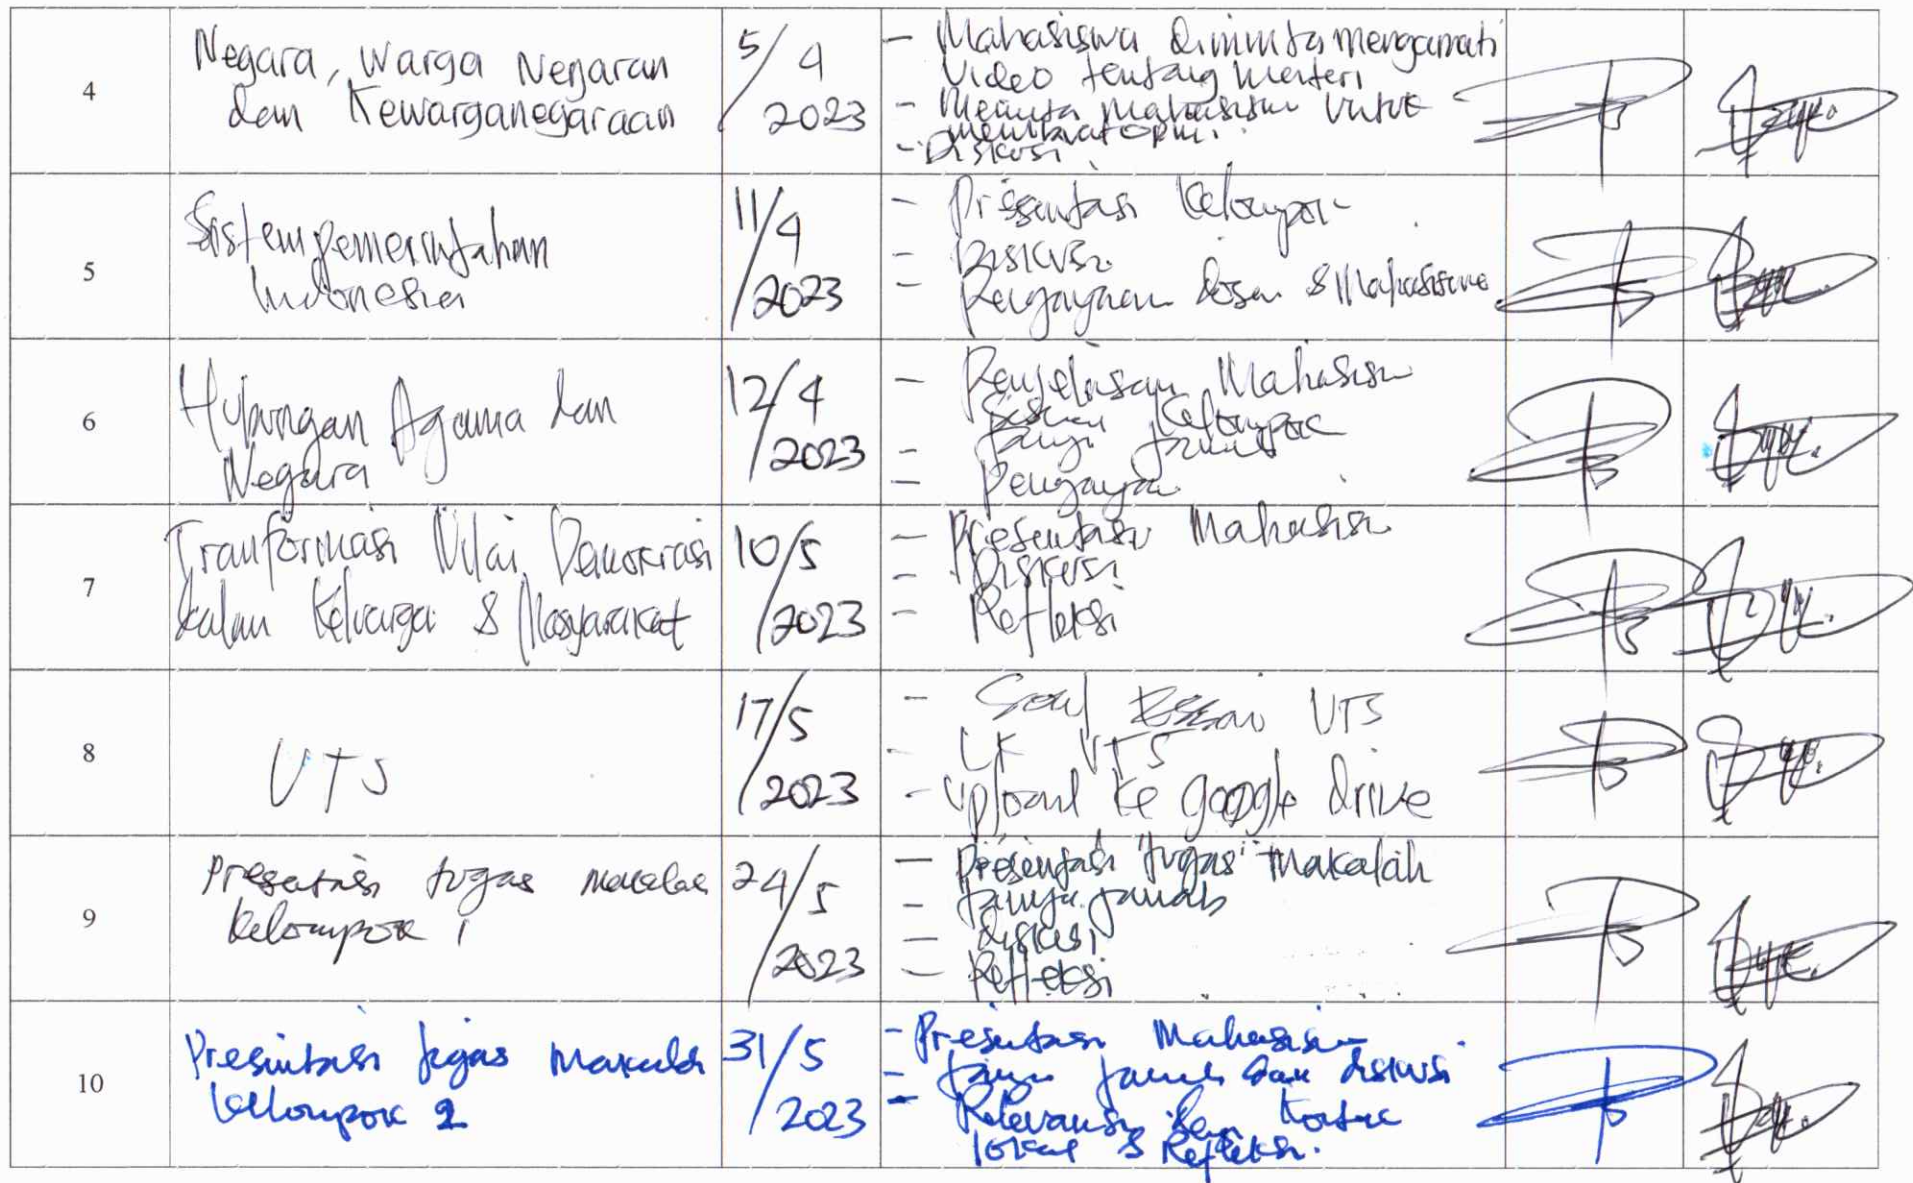 4
Negara, Warga Negaran
dan Kewarganegaraan
5/4
2023
- Mahasiswa diminta mengamati
Video tentang Materi
- Meminta Mahasiswa Untuk
membuat opini.
- Diskusi
5
Sistem pemerintahan
Indonesia
11/4
2023
- Presentasi Kelompok
- Diskusi
- Pengayaan dosen & Mahasiswa
6
Hubungan Agama dan
Negara
12/4
2023
- Penjelasan Mahasiswa
Kelompok
- Tanya Jawab
- Pengayaan
7
Tranformasi Nilai Demokrasi
dalam Keluarga & Masyarakat
10/5
2023
- Presentasi Mahasiswa
- Diskusi
- Refleksi
8
UTS
17/5
2023
- Soal Essai UTS
- LK UTS
- Upload ke google drive
9
Presentasi tugas makalah
kelompok 1
24/5
2023
- Presentasi tugas makalah
- Tanya jawab
- diskusi
- Refleksi
10
Presentasi tugas makalah
kelompok 2
31/5
2023
- Presentasi Mahasiswa
- tanya jawab dan diskusi
- Relevansi dgn
lokal & Refleksi.